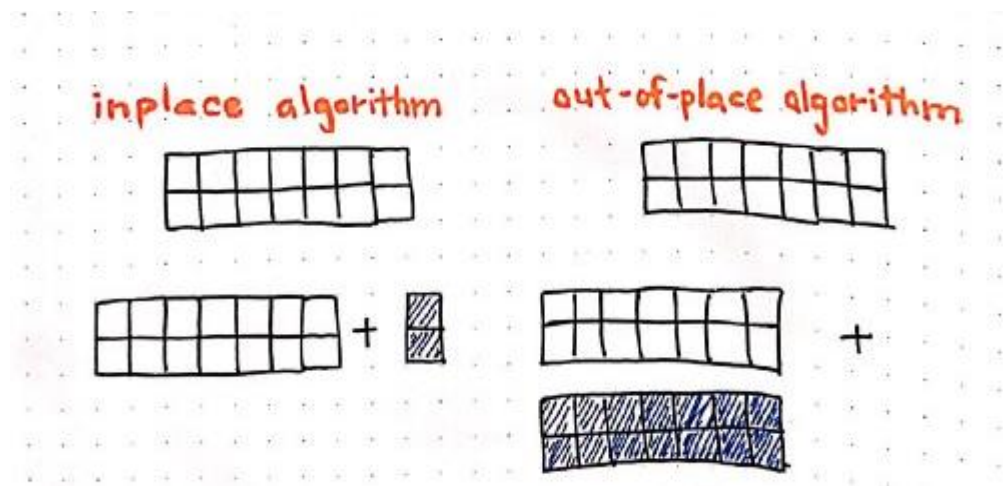 inplace algorithm
out-of-place algorithm
+
+